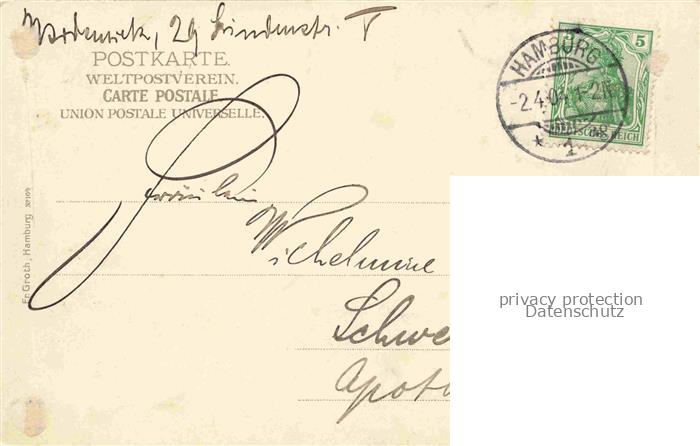 29 Lindenstr. V
POSTKARTE.
WELTPOSTVEREIN.
CARTE POSTALE
UNION POSTALE UNIVERSELLE.
5
HAMBURG
-2.4.04. 1-2N
DEUTSCHES REICH
* 1
Fräulein
Wilhelmine
Schwe
Apoth
Fr. Groth, Hamburg
privacy protection
Datenschutz